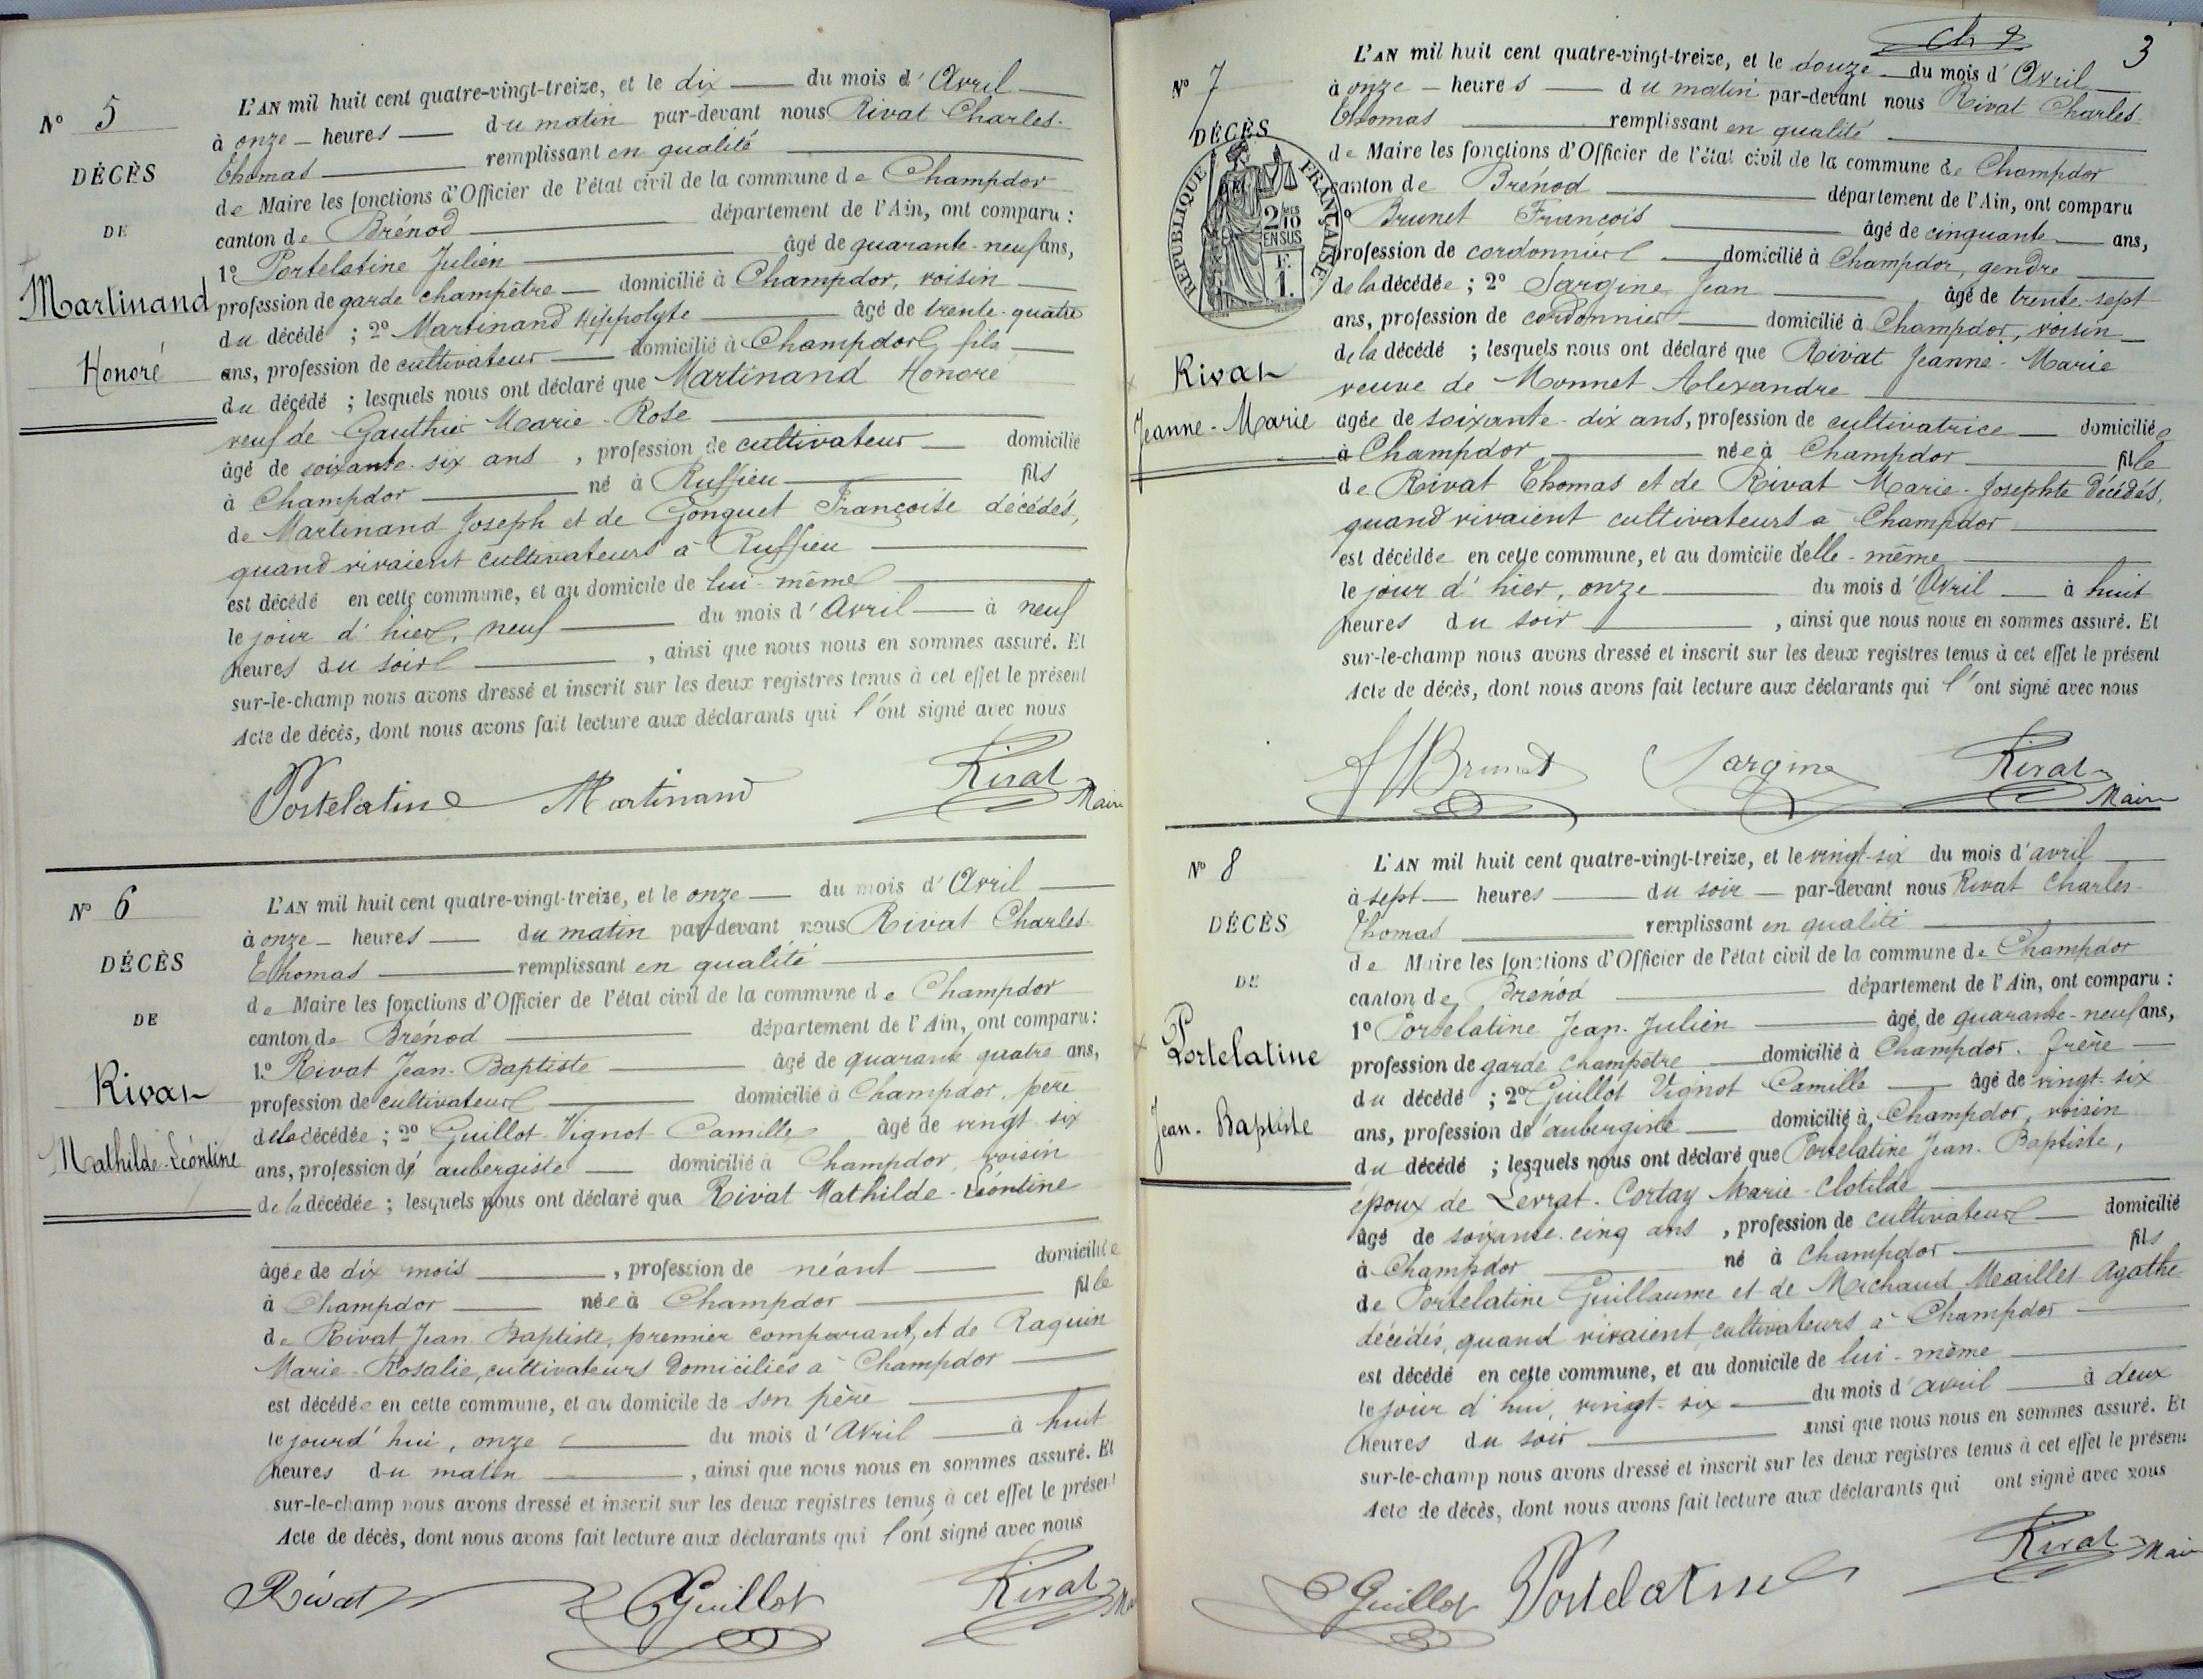 N° 5
DÉCÈS
DE
Martinand
Honoré
L'AN mil huit cent quatre-vingt-treize, et le dix du mois d'Avril
à onze heures du matin par-devant nous Rivat Charles-
Thomas remplissant en qualité
de Maire les fonctions d'Officier de l'état civil de la commune de Champdor
canton de Brénod département de l'Ain, ont comparu :
1° Portelatine Julien âgé de quarante-neuf ans,
profession de garde champêtre domicilié à Champdor, voisin
du décédé ; 2° Martinand Hippolyte âgé de trente-quatre
ans, profession de cultivateur domicilié à Champdor, fils
du décédé ; lesquels nous ont déclaré que Martinand Honoré
veuf de Gauthier Marie-Rose
âgé de soixante-six ans , profession de cultivateur domicilié
à Champdor né à Ruffieu fils
de Martinand Joseph et de Gonguet Françoise décédés,
quand vivaient cultivateurs à Ruffieu
est décédé en cette commune, et au domicile de lui-même
le jour d'hier, neuf du mois d'Avril à neuf
heures du soir , ainsi que nous nous en sommes assuré. Et
sur-le-champ nous avons dressé et inscrit sur les deux registres tenus à cet effet le présent
Acte de décès, dont nous avons fait lecture aux déclarants qui l'ont signé avec nous
Portelatine Martinand Rivat Maire
N° 6
DÉCÈS
DE
Rivat
Mathilde-Léontine
L'AN mil huit cent quatre-vingt-treize, et le onze du mois d'Avril
à onze heures du matin par-devant nous Rivat Charles-
Thomas remplissant en qualité
de Maire les fonctions d'Officier de l'état civil de la commune de Champdor
canton de Brénod département de l'Ain, ont comparu :
1° Rivat Jean-Baptiste âgé de quarante quatre ans,
profession de cultivateur domicilié à Champdor, père
de la décédée ; 2° Guillot-Vignot Camille âgé de vingt-six
ans, profession d'aubergiste domicilié à Champdor, voisin
de la décédée ; lesquels nous ont déclaré que Rivat Mathilde-Léontine
âgée de dix mois , profession de néant domiciliée
à Champdor née à Champdor fille
de Rivat Jean-Baptiste, premier comparant, et de Raquin
Marie-Rosalie, cultivateurs domiciliés à Champdor
est décédée en cette commune, et au domicile de son père
le jourd'hui, onze du mois d'Avril à huit
heures du matin , ainsi que nous nous en sommes assuré. Et
sur-le-champ nous avons dressé et inscrit sur les deux registres tenus à cet effet le présent
Acte de décès, dont nous avons fait lecture aux déclarants qui l'ont signé avec nous
Rivat Guillot Rivat
3
N° 7
DÉCÈS
RÉPUBLIQUE FRANÇAISE
2/10
EN SUS
F.
1.
Rivat
Jeanne-Marie
L'AN mil huit cent quatre-vingt-treize, et le douze du mois d'Avril
à onze heures du matin par-devant nous Rivat Charles-
Thomas remplissant en qualité
de Maire les fonctions d'Officier de l'état civil de la commune de Champdor
canton de Brénod département de l'Ain, ont comparu
1° Brunet François âgé de cinquante ans,
profession de cordonnier domicilié à Champdor, gendre
de la décédée ; 2° Sargine Jean âgé de trente-sept
ans, profession de cordonnier domicilié à Champdor, voisin
de la décédé ; lesquels nous ont déclaré que Rivat Jeanne-Marie
veuve de Monnet Alexandre
agée de soixante-dix ans, profession de cultivatrice domiciliée
à Champdor née à Champdor fille
de Rivat Thomas et de Rivat Marie-Josephte décédés,
quand vivaient cultivateurs à Champdor
est décédée en cette commune, et au domicile d'elle-même
le jour d'hier, onze du mois d'Avril à huit
heures du soir , ainsi que nous nous en sommes assuré. Et
sur-le-champ nous avons dressé et inscrit sur les deux registres tenus à cet effet le présent
Acte de décès, dont nous avons fait lecture aux déclarants qui l'ont signé avec nous
Brunet Sargine Rivat Maire
N° 8
DÉCÈS
DE
Portelatine
Jean-Baptiste
L'AN mil huit cent quatre-vingt-treize, et le vingt-six du mois d'avril
à sept heures du soir par-devant nous Rivat Charles-
Thomas remplissant en qualité
de Maire les fonctions d'Officier de l'état civil de la commune de Champdor
canton de Brénod département de l'Ain, ont comparu :
1° Portelatine Jean-Julien âgé de quarante-neuf ans,
profession de garde champêtre domicilié à Champdor, frère
du décédé ; 2° Guillot Vignot Camille âgé de vingt-six
ans, profession d'aubergiste domicilié à Champdor, voisin
du décédé ; lesquels nous ont déclaré que Portelatine Jean-Baptiste,
époux de Levrat-Cortay Marie-Clotilde
âgé de soixante-cinq ans , profession de cultivateur domicilié
à Champdor né à Champdor fils
de Portelatine Guillaume et de Michaud Maillet Agathe
décédés, quand vivaient cultivateurs à Champdor
est décédé en cette commune, et au domicile de lui-même
le jour d'hui, vingt-six du mois d'avril à deux
heures du soir ainsi que nous nous en sommes assuré. Et
sur-le-champ nous avons dressé et inscrit sur les deux registres tenus à cet effet le présent
Acte de décès, dont nous avons fait lecture aux déclarants qui ont signé avec nous
Guillot Portelatine Rivat Maire